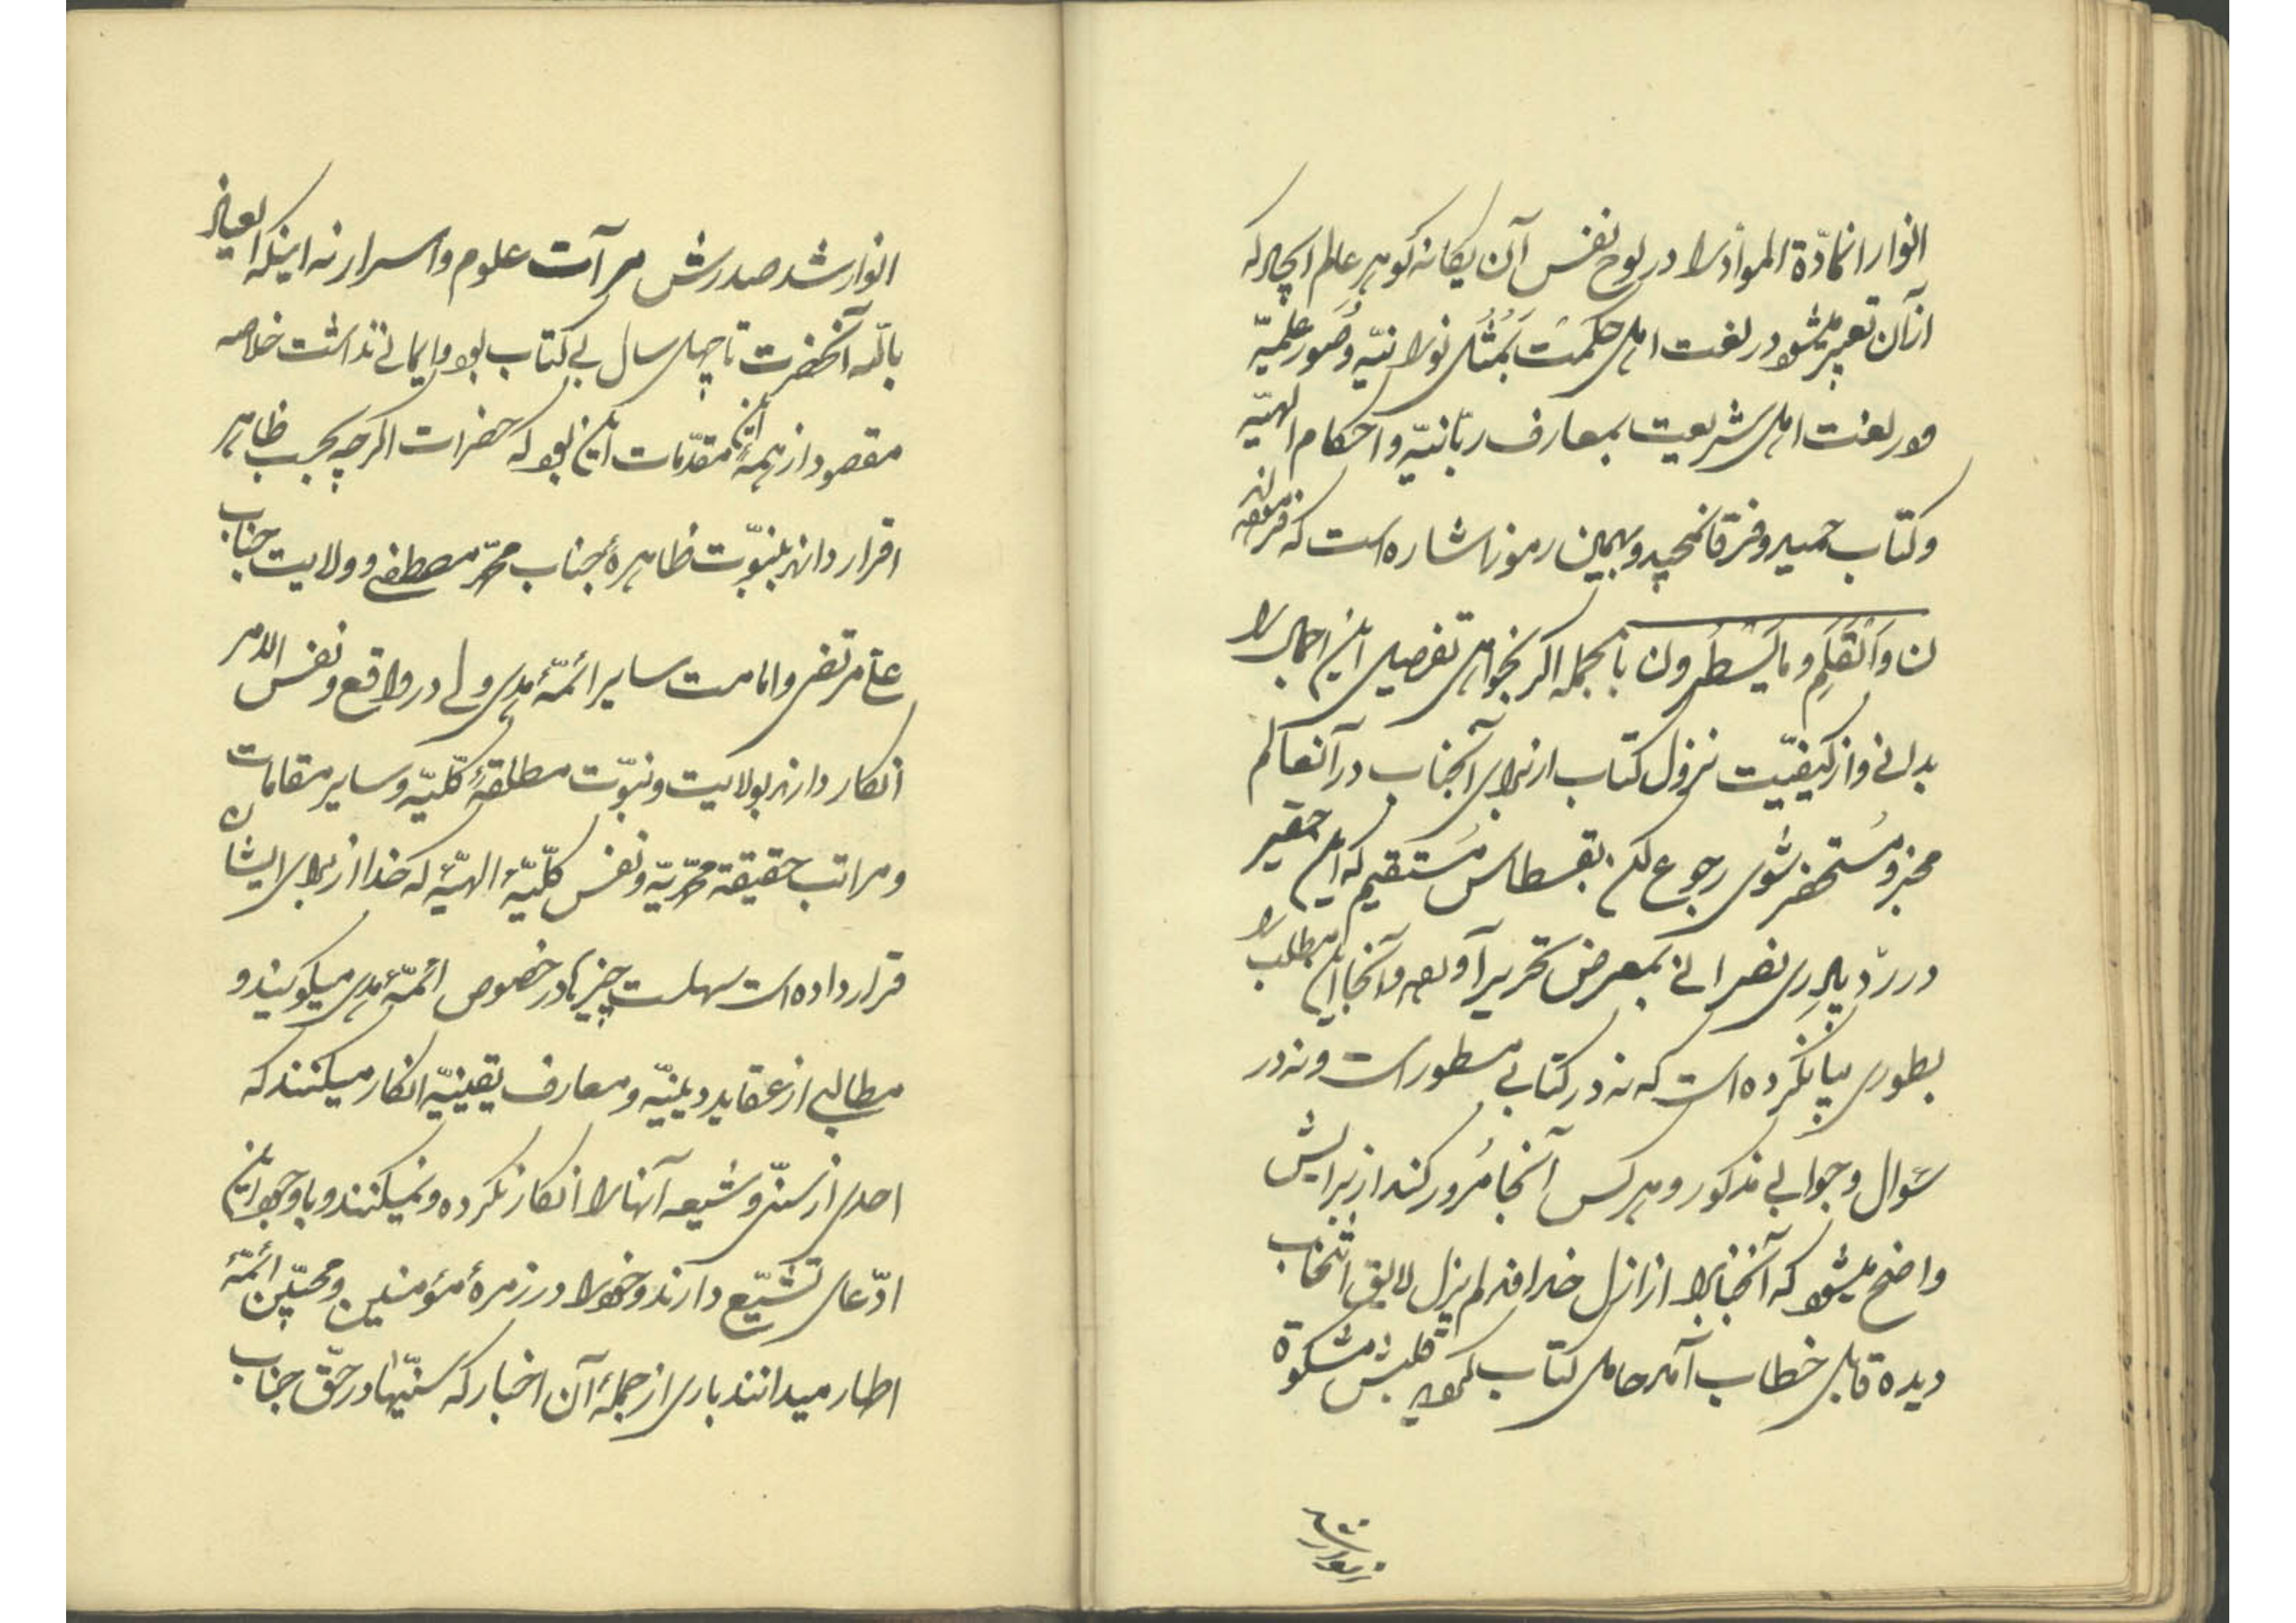 انوار انمادّة الموادّ را در لوح نفس آن یکانه کوهر عالم ایجاد که
از آن تعبیر میشود در لغت اهل حکمت بمُثُل نورانیّه وصُور علمیّه
ودر لغت اهل شریعت بمعارف ربّانیّه واحکام الهیّه
وکتاب حمید وفرقان مجید وبهمین رموز اشاره است که فرموده اند
ن وَالْقَلَمِ وما یَسْطُرون بالجمله اکر بخواهی تفصیل این اجمال را
بدانی واز کیفیّت نزول کتاب از برای آنجناب در آنعالم
مخبر ومُستحضر شوی رجوع کن بقسطاس مُستقیم که این حقیر
در ردّ پادری نصرانی بمعرض تحریر آورده وآنجا این مطلب را
بطوری بیان کرده است که نه در کتابی مسطور است ونه در
سؤال وجوابی مذکور وهر کس آنجا مُرور کند از برایش
واضح میشود که آنجناب را از ازل خدا وند لم یزل لایق انتخاب
دیده قابل خطاب آمد حامل کتاب کردید قلبش مشکوة
انوار شد صدرش مرآت علوم واسرار نه اینکه العیاذ
باللّه آنحضرت تا چهل سال بی کتاب بود وایمانی نداشت خلاصه
مقصود از همهٔ آن مقدّمات این بود که حضرات اکر چه بحسب ظاهر
اقرار دارند بنبوّت ظاهرهٔ جناب محمّد مصطفی وولایت جناب
علی مرتضی وامامت سایر ائمّهٔ هدی ولی در واقع ونفس الامر
انکار دارند بولایت ونبوّت مطلقهٔ کلّیّه وسایر مقامات
ومراتب حقیقة محمّدیّه ونفس کلّیّهٔ الهیّه که خدا از برای ایشان
قرار داده است سهلست چیزها در خصوص ائمّهٔ هدی میکویند و
مطالبی از عقاید دینیّه ومعارف یقینیّه انکار میکنند که
احدی از سنّی وشیعه آنها را انکار نکرده ونمیکنند وبا وجود این
ادّعای تشیّع دارند وخود را در زمرهٔ مؤمنین ومحبّین ائمّهٔ
اطهار میدانند باری از جملهٔ آن اخبار که سنّیها در حقّ جناب